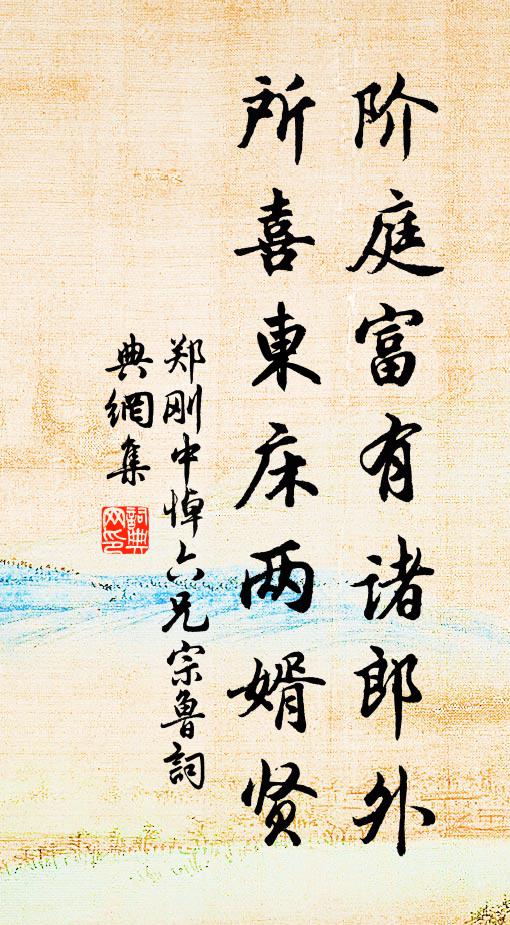 阶庭富有诸郎外
所喜東床两婿贤
郑刚中悼六兄宗鲁詞
典網集
詞典
网印